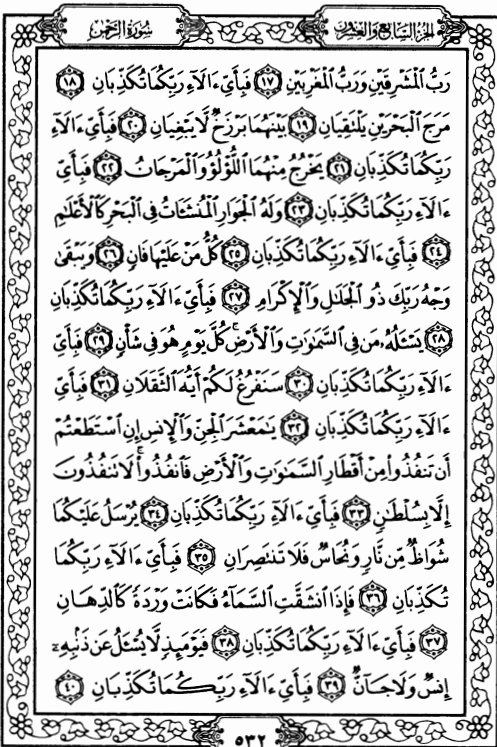 الجزء السابع والعشرون
سورة الرحمن
رَبُّ الْمَشْرِقَيْنِ وَرَبُّ الْمَغْرِبَيْنِ ١٧ فَبِأَيِّ ءَالَآءِ رَبِّكُمَا تُكَذِّبَانِ ١٨
مَرَجَ الْبَحْرَيْنِ يَلْتَقِيَانِ ١٩ بَيْنَهُمَا بَرْزَخٌ لَّا يَبْغِيَانِ ٢٠ فَبِأَيِّ ءَالَآءِ
رَبِّكُمَا تُكَذِّبَانِ ٢١ يَخْرُجُ مِنْهُمَا اللُّؤْلُؤُ وَالْمَرْجَانُ ٢٢ فَبِأَيِّ
ءَالَآءِ رَبِّكُمَا تُكَذِّبَانِ ٢٣ وَلَهُ الْجَوَارِ الْمُنشَـَٔاتُ فِي الْبَحْرِ كَالْأَعْلَٰمِ
٢٤ فَبِأَيِّ ءَالَآءِ رَبِّكُمَا تُكَذِّبَانِ ٢٥ كُلُّ مَنْ عَلَيْهَا فَانٍ ٢٦ وَيَبْقَىٰ
وَجْهُ رَبِّكَ ذُو الْجَلَٰلِ وَالْإِكْرَامِ ٢٧ فَبِأَيِّ ءَالَآءِ رَبِّكُمَا تُكَذِّبَانِ
٢٨ يَسْـَٔلُهُۥ مَن فِي السَّمَٰوَٰتِ وَالْأَرْضِ ۚ كُلَّ يَوْمٍ هُوَ فِي شَأْنٍ ٢٩ فَبِأَيِّ
ءَالَآءِ رَبِّكُمَا تُكَذِّبَانِ ٣٠ سَنَفْرُغُ لَكُمْ أَيُّهَ الثَّقَلَانِ ٣١ فَبِأَيِّ
ءَالَآءِ رَبِّكُمَا تُكَذِّبَانِ ٣٢ يَٰمَعْشَرَ الْجِنِّ وَالْإِنسِ إِنِ اسْتَطَعْتُمْ
أَن تَنفُذُوا۟ مِنْ أَقْطَارِ السَّمَٰوَٰتِ وَالْأَرْضِ فَانفُذُوا۟ ۚ لَا تَنفُذُونَ
إِلَّا بِسُلْطَٰنٍ ٣٣ فَبِأَيِّ ءَالَآءِ رَبِّكُمَا تُكَذِّبَانِ ٣٤ يُرْسَلُ عَلَيْكُمَا
شُوَاظٌ مِّن نَّارٍ وَنُحَاسٌ فَلَا تَنتَصِرَانِ ٣٥ فَبِأَيِّ ءَالَآءِ رَبِّكُمَا
تُكَذِّبَانِ ٣٦ فَإِذَا انشَقَّتِ السَّمَآءُ فَكَانَتْ وَرْدَةً كَالدِّهَانِ
٣٧ فَبِأَيِّ ءَالَآءِ رَبِّكُمَا تُكَذِّبَانِ ٣٨ فَيَوْمَئِذٍ لَّا يُسْـَٔلُ عَن ذَنۢبِهِۦٓ
إِنسٌ وَلَا جَآنٌّ ٣٩ فَبِأَيِّ ءَالَآءِ رَبِّكُمَا تُكَذِّبَانِ ٤٠
٥٣٢